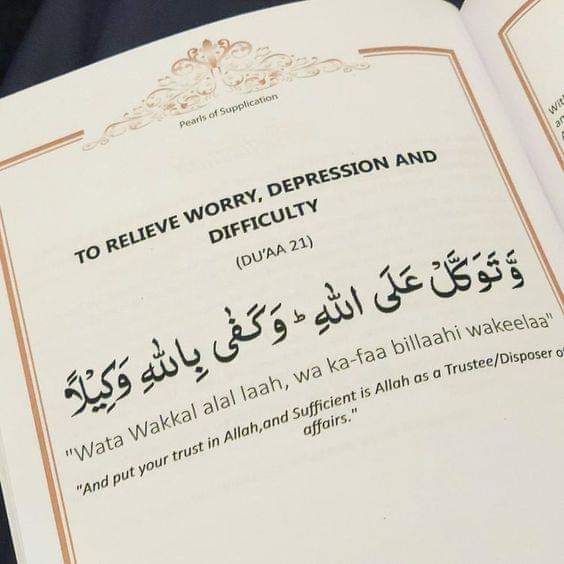 Pearls of Supplication
TO RELIEVE WORRY, DEPRESSION AND
DIFFICULTY
(DU'AA 21)
وَّ تَوَكَّلْ عَلَى اللّٰهِ ؕ وَ كَفٰى بِاللّٰهِ وَكِيْلًا
"Wata Wakkal alal laah, wa ka-faa billaahi wakeelaa"
"And put your trust in Allah,and Sufficient is Allah as a Trustee/Disposer
affairs."